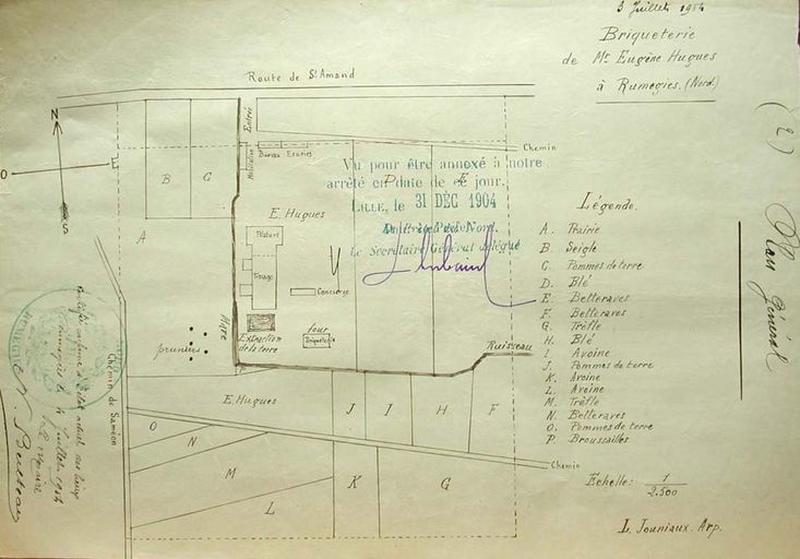 3 Juillet 1904
Briqueterie
de Mr Eugène Hugues
à Rumegies. (Nord.)
(2)
Plan Général
Route de St Amand
Entrée
Chemin
N
O
E
S
Habitation
Bureau Ecuries
B
C
D
E
A
Vu pour être annexé à notre
arrêté en date de ce jour.
LILLE, le 31 DÉC 1904
Le Secrétaire Général délégué
E. Hugues
Séchoir
Concierge
Haie
four
Briqueterie
Extraction
de la terre
pruniers
Ruisseau
P
E. Hugues
J
I
H
F
O
N
M
L
K
G
Chemin
Chemin de Saméon
Légende.
A. Prairie
B. Seigle
C. Pommes de terre
D. Blé
E. Betteraves
F. Betteraves
G. Trèfle
H. Blé
I. Avoine
J. Pommes de terre
K. Avoine
L. Avoine
M. Trèfle
N. Betteraves
O. Pommes de terre
P. Broussailles
Echelle: 1
2.500
L. Jouniaux. Arp.
Rumegies le 4 Juillet 1904
Le Maire